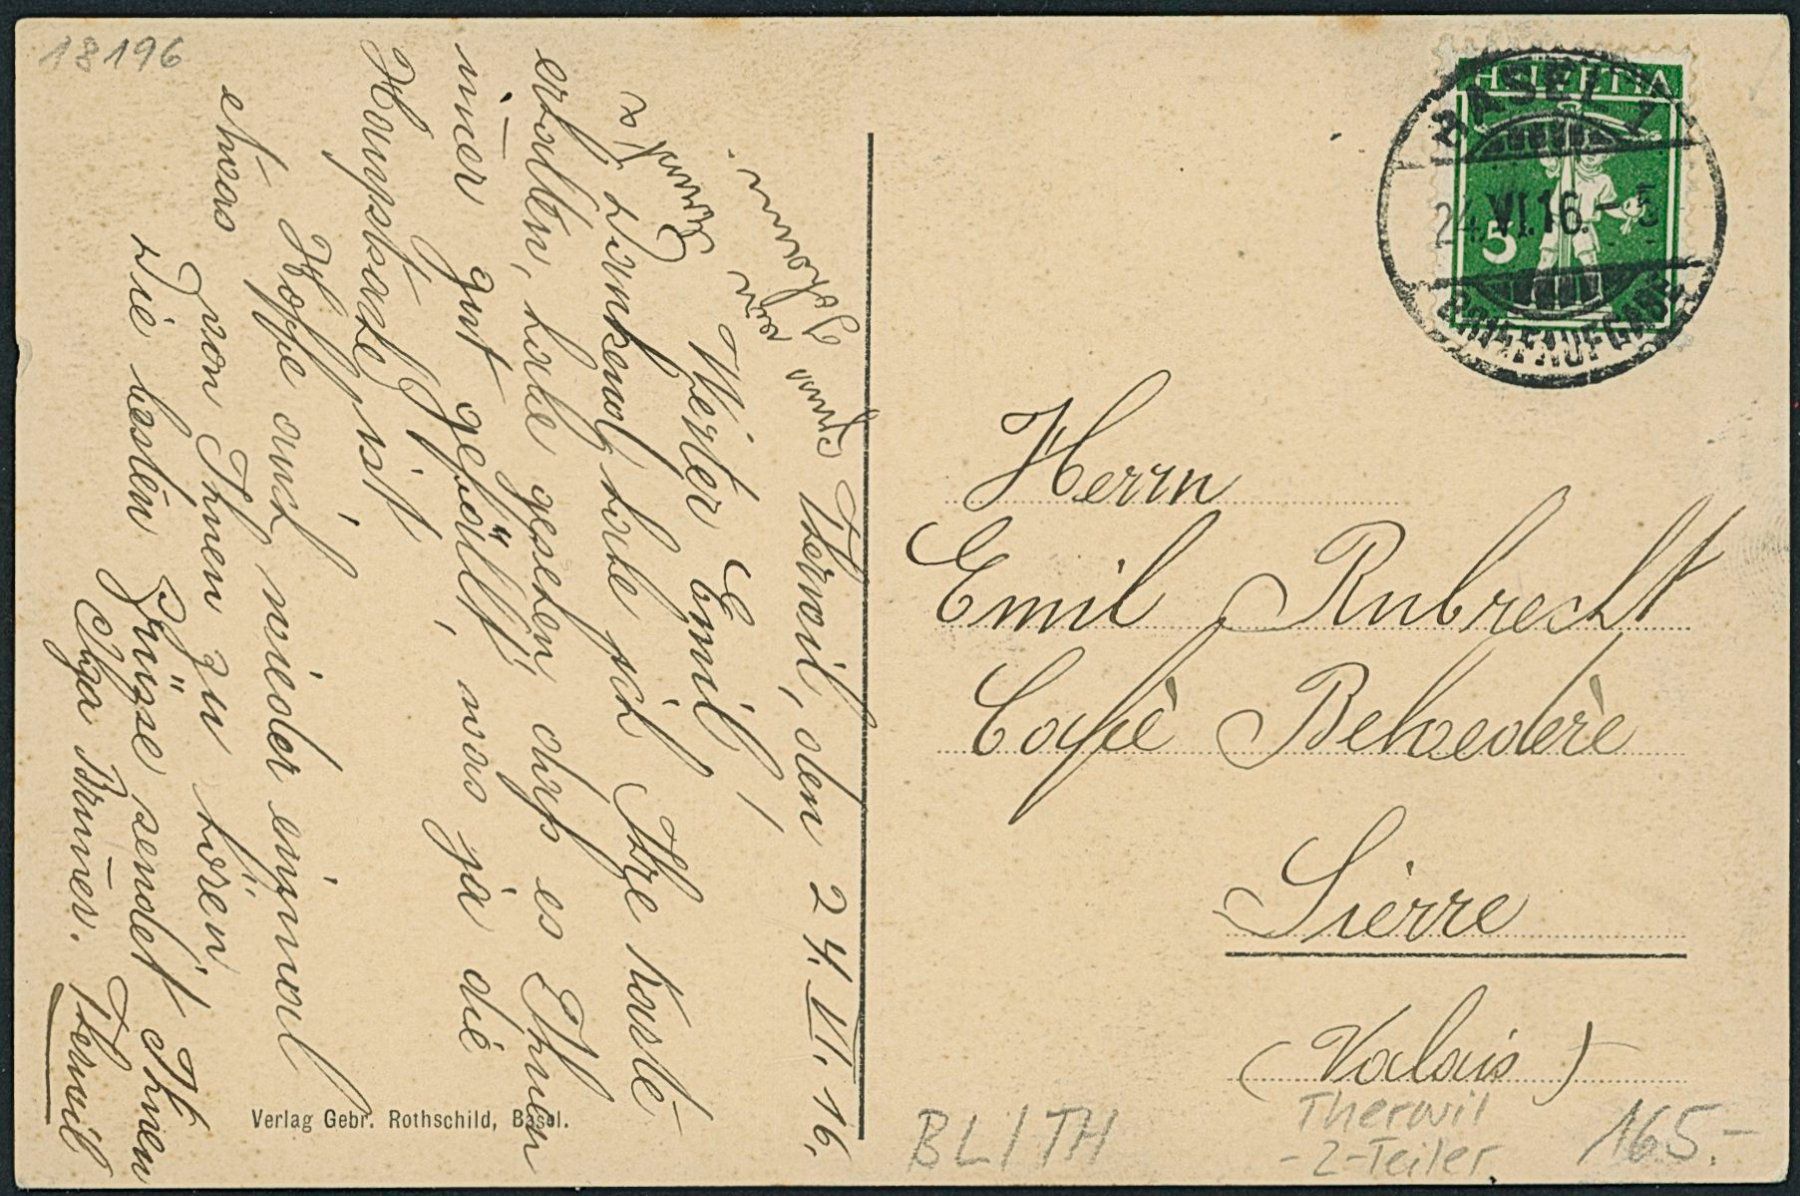 18196
HELVETIA
5
BASEL 1
24.VI.16.-5
BRIEFAUFGABE
Herrn
Emil Rubrecht
Cafè Belvedère
Sierre
(Valais)
Therwil, den 24. VI. 16.
Werter Emil!
Dankend, habe ich Ihre Karte
erhalten, habe gesehen, daß es Ihnen
im̄er gut gefällt, was ja die
Hauptsache ist.
Hoffe auch wieder einmal
etwas von Ihnen zu hören,
Die besten Grüsse sendet Ihnen
Olga Brun̄er. Therwil
Gruss von
Johann.
Verlag Gebr. Rothschild, Basel.
BL / TH
Therwil
-2-Teiler
165.-